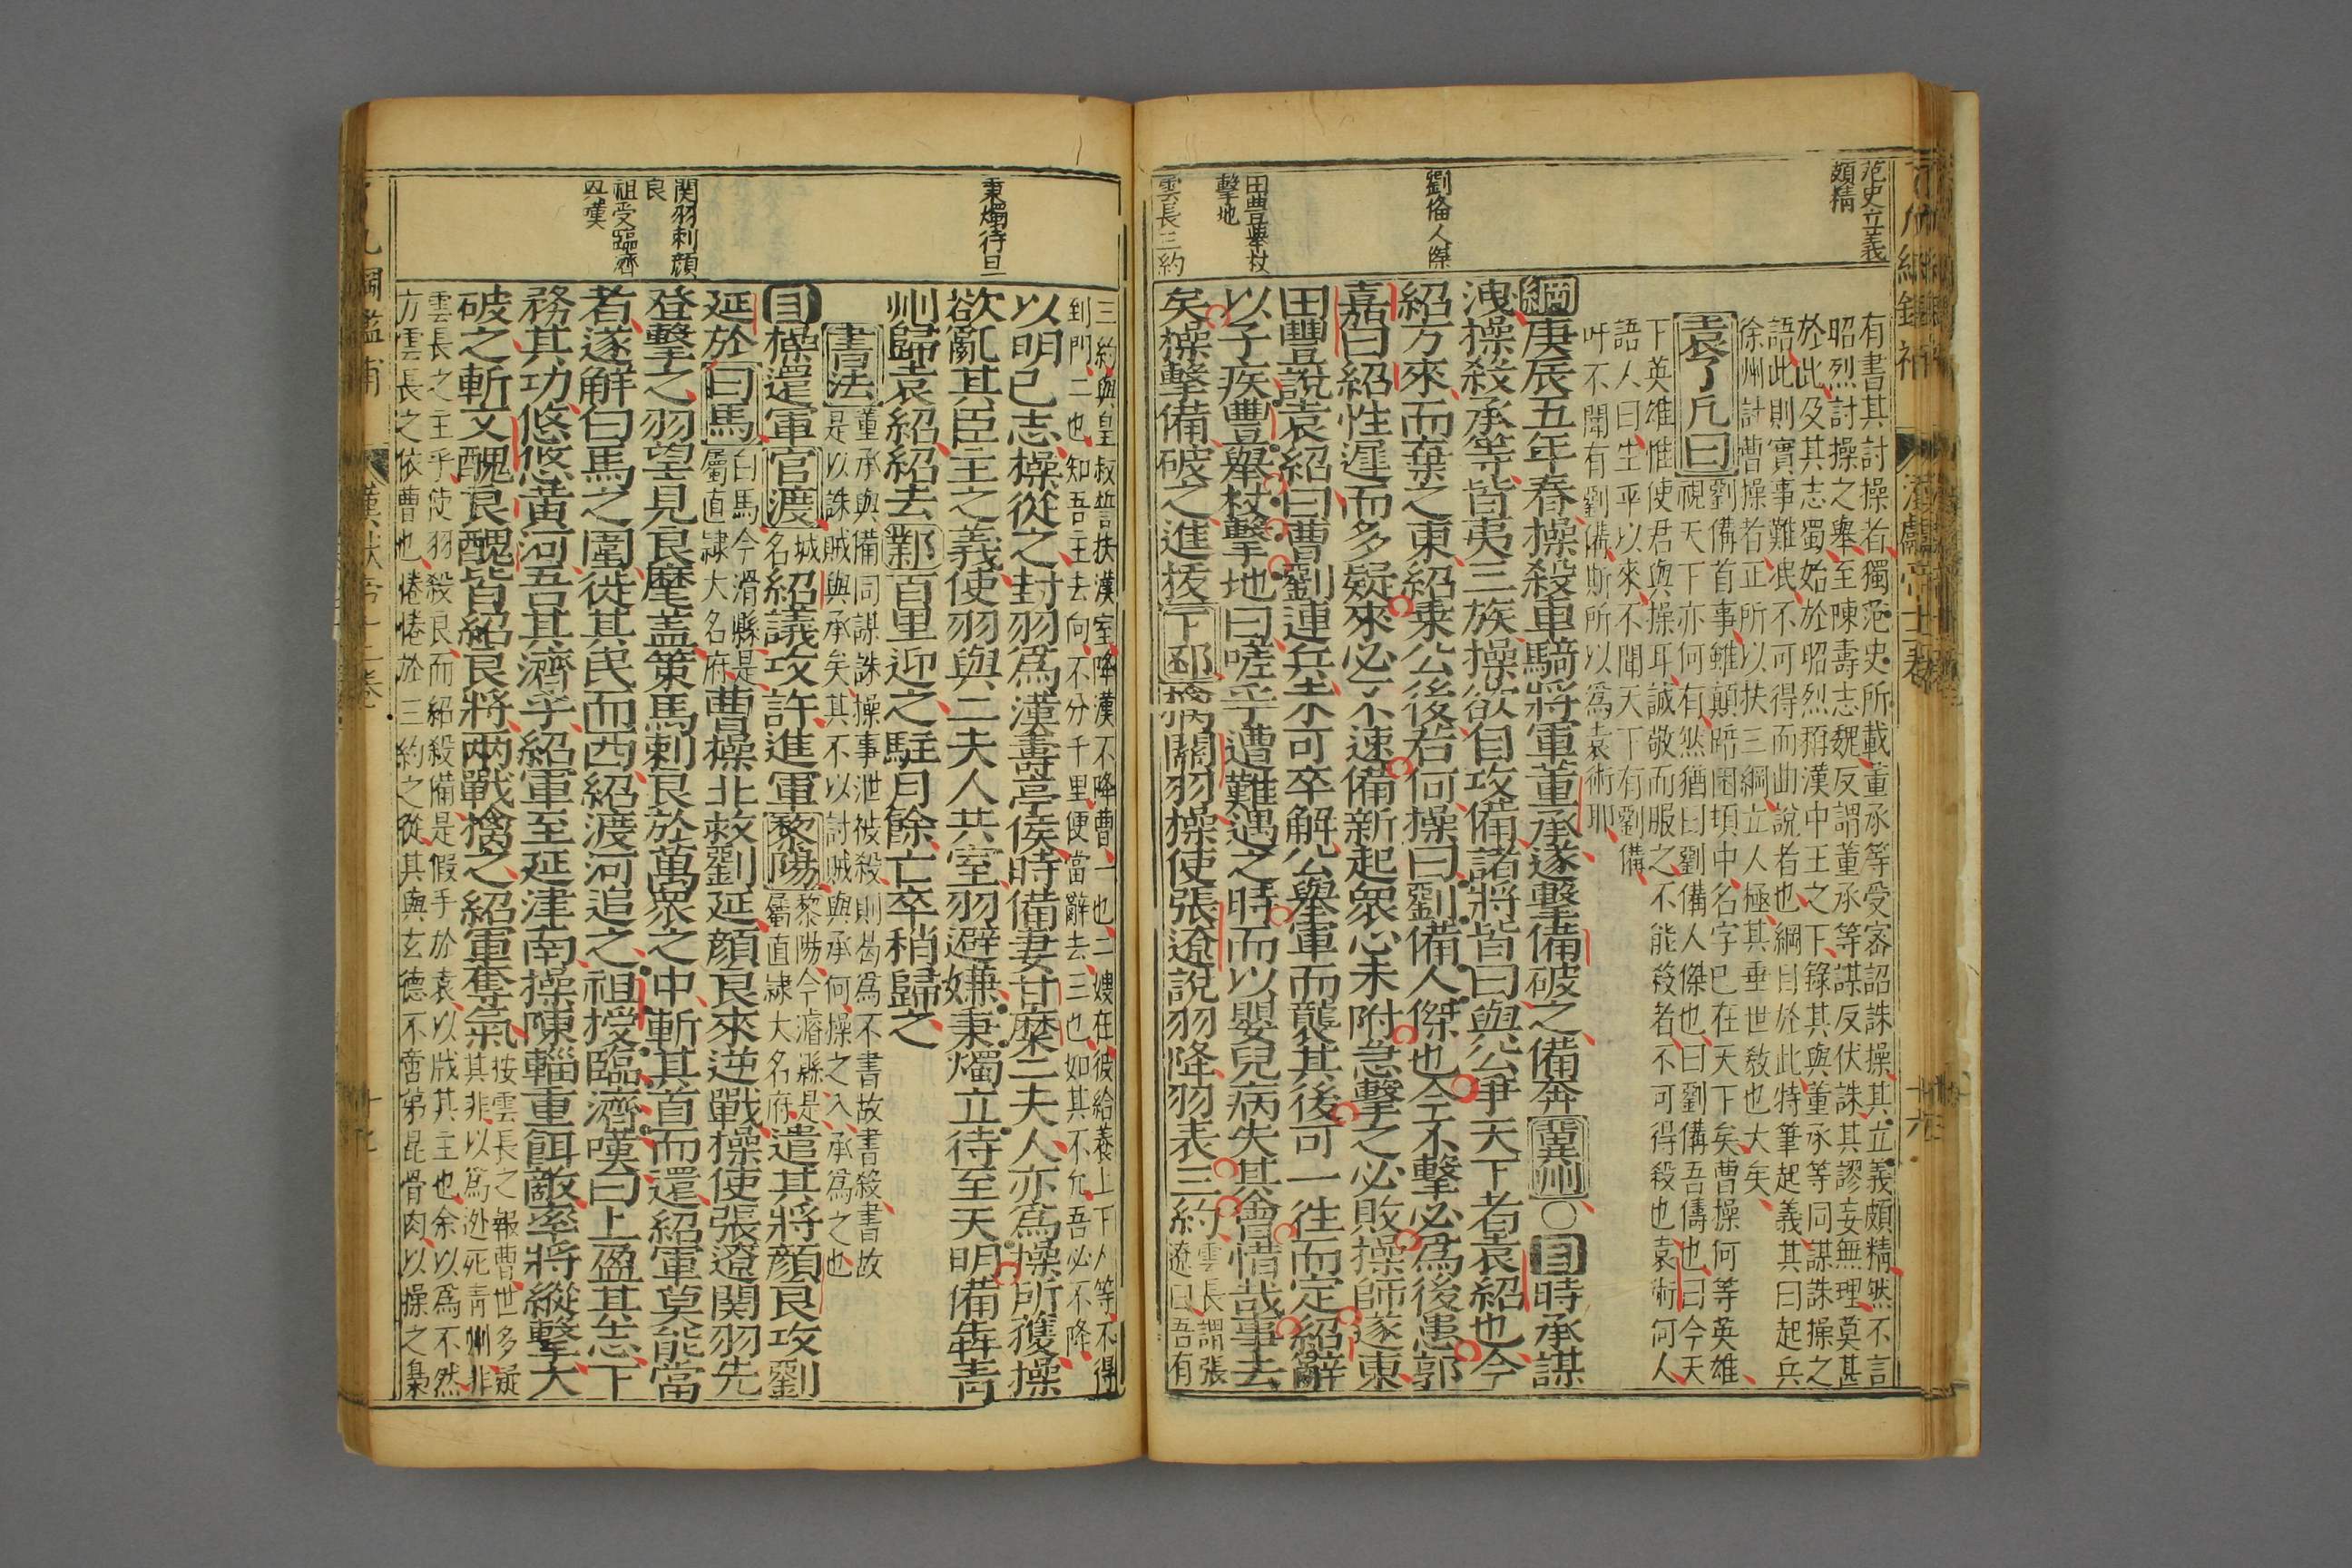 范史立義
頗精
劉俻人傑
田豊舉杖
擊地
雲長三約
有書其討操者獨范史所載董承等受密詔誅操其立義頗精然不言
昭烈討操之舉至陳壽志魏反謂董承等謀反伏誅其謬妄無理莫甚
於此及其志蜀始於昭烈稱漢中王之下錄其與董承等同謀誅操之
語此則實事難泯不可得而曲說者也綱目於此特筆起義其曰起兵
徐州討曹操者正所以扶三綱立人極其垂世教也大矣
袁了凡曰劉備首事雖顛踣困頓中名字已在天下矣曹操何等英雄
視天下亦何有然猶曰劉備人傑也曰劉備吾儔也曰今天
下英雄惟使君與操耳誠敬而服之不能殺者不可得殺也袁術何人
語人曰生平以來不聞天下有劉備
吁不聞有劉備斯所以爲袁術耶
綱庚辰五年春操殺車騎將軍董承遂擊備破之備奔冀州〇目時承謀
洩操殺承等皆夷三族操欲自攻備諸將皆曰與公爭天下者袁紹也今
紹方來而棄之東紹乘公後若何操曰劉備人傑也今不擊必爲後患郭
嘉曰紹性遲而多疑來必不速備新起衆心未附急擊之必敗操師遂東
田豐說袁紹曰曹劉連兵未可卒解公舉軍而襲其後可一往而定紹辭
以子疾豐舉杖擊地曰嗟乎遭難遇之時而以嬰兒病失其會惜哉事去
矣操擊備破之進拔下邳擒關羽操使張遼說羽降羽表三約雲長謂張
遼曰吾有
秉燭待旦
関羽刺顔
良
祖受臨濟
興嘆
三約與皇叔誓扶漢室降漢不降曹一也二嫂在彼給養上下人等不得
到門二也知吾主去向不分千里便當辭去三也如其不允吾必不降
以明已志操從之封羽爲漢壽亭侯時備妻甘糜二夫人亦爲操所獲操
欲亂其臣主之義使羽與二夫人共室羽避嫌秉燭立待至天明備奔青
州歸袁紹紹去鄴百里迎之駐月餘亡卒稍歸之
書法董承與備同謀誅操事泄彼殺則曷爲不書故書殺書故
是以誅賊與承矣其不以討賊與承何操之入承爲之也
目操還軍官渡城
名紹議攻許進軍黎陽黎陽今濬縣是
屬直隷大名府遣其將顔良攻劉
延於白馬白馬今滑縣是
屬直隷大名府曹操北救劉延顔良來逆戰操使張遼関羽先
登擊之羽望見良麾盖策馬刺良於萬衆之中斬其首而還紹軍莫能當
者遂解白馬之圍徙其民而西紹渡河追之祖授臨濟嘆曰上盈其志下
務其功悠悠黄河吾其濟乎紹軍至延津南操陳輜重餌敵率將縱擊大
破之斬文醜良醜皆紹良將兩戰擒之紹軍奪氣按雲長之報曹世多疑
其非以爲迯死青州非
雲長之主乎使羽殺良而紹殺備是假手於袁以戕其主也余以爲不然
方雲長之依曹也惓惓於三約之從其與玄德不啻弟昆骨肉以操之梟